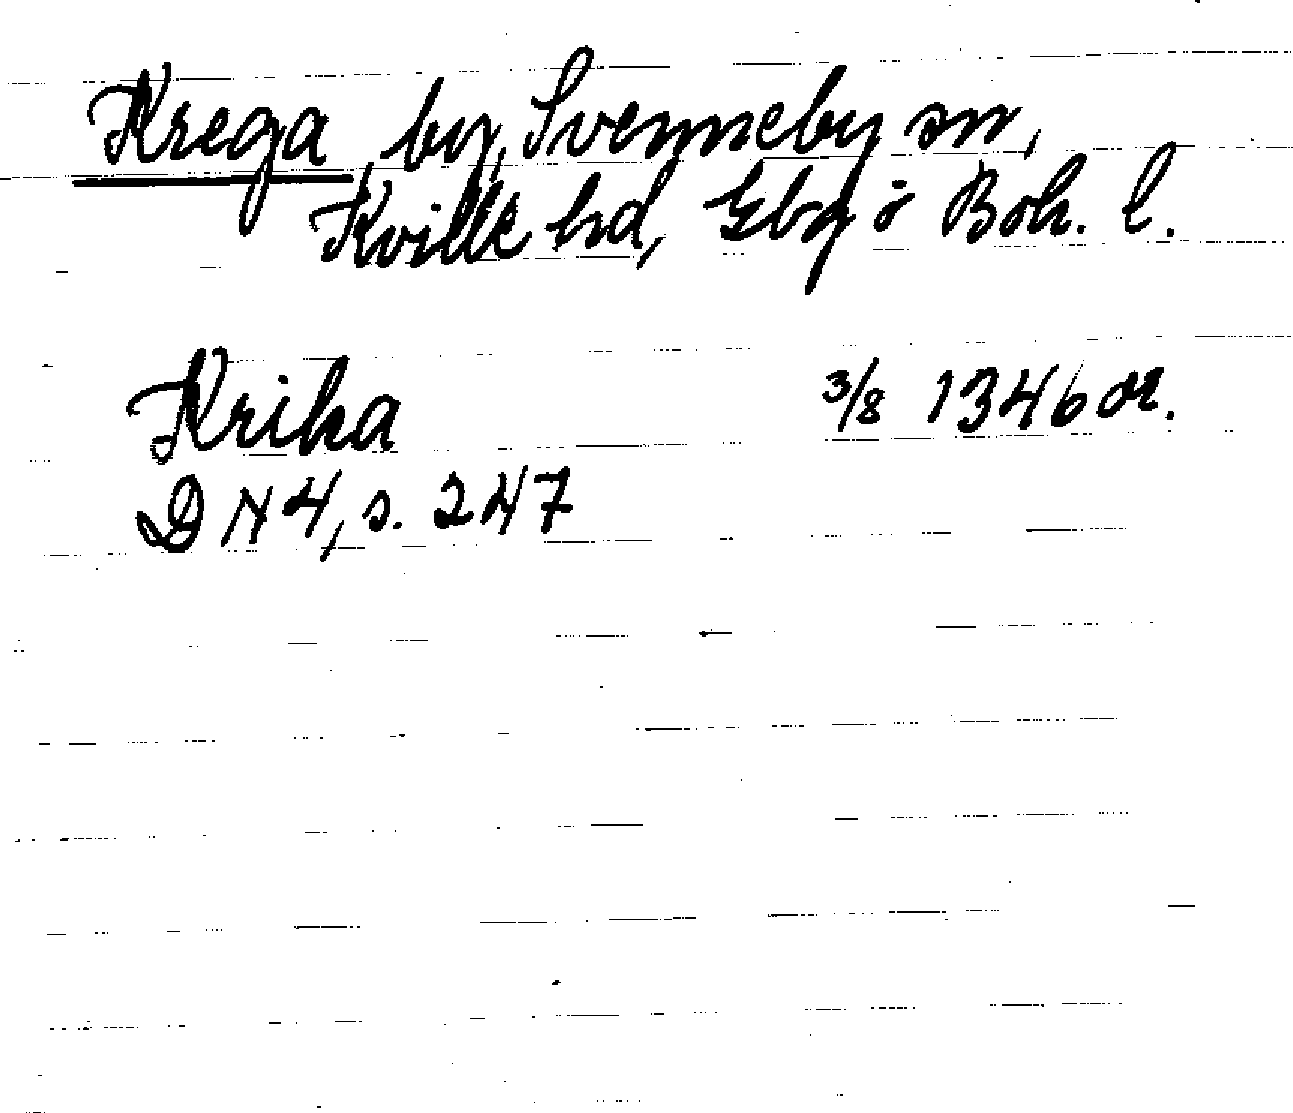 Krega by, Svenneby sn,
Kville hd, Gbg o Boh. l.
Krika 3/8 1346 or.
DN 4, s. 247